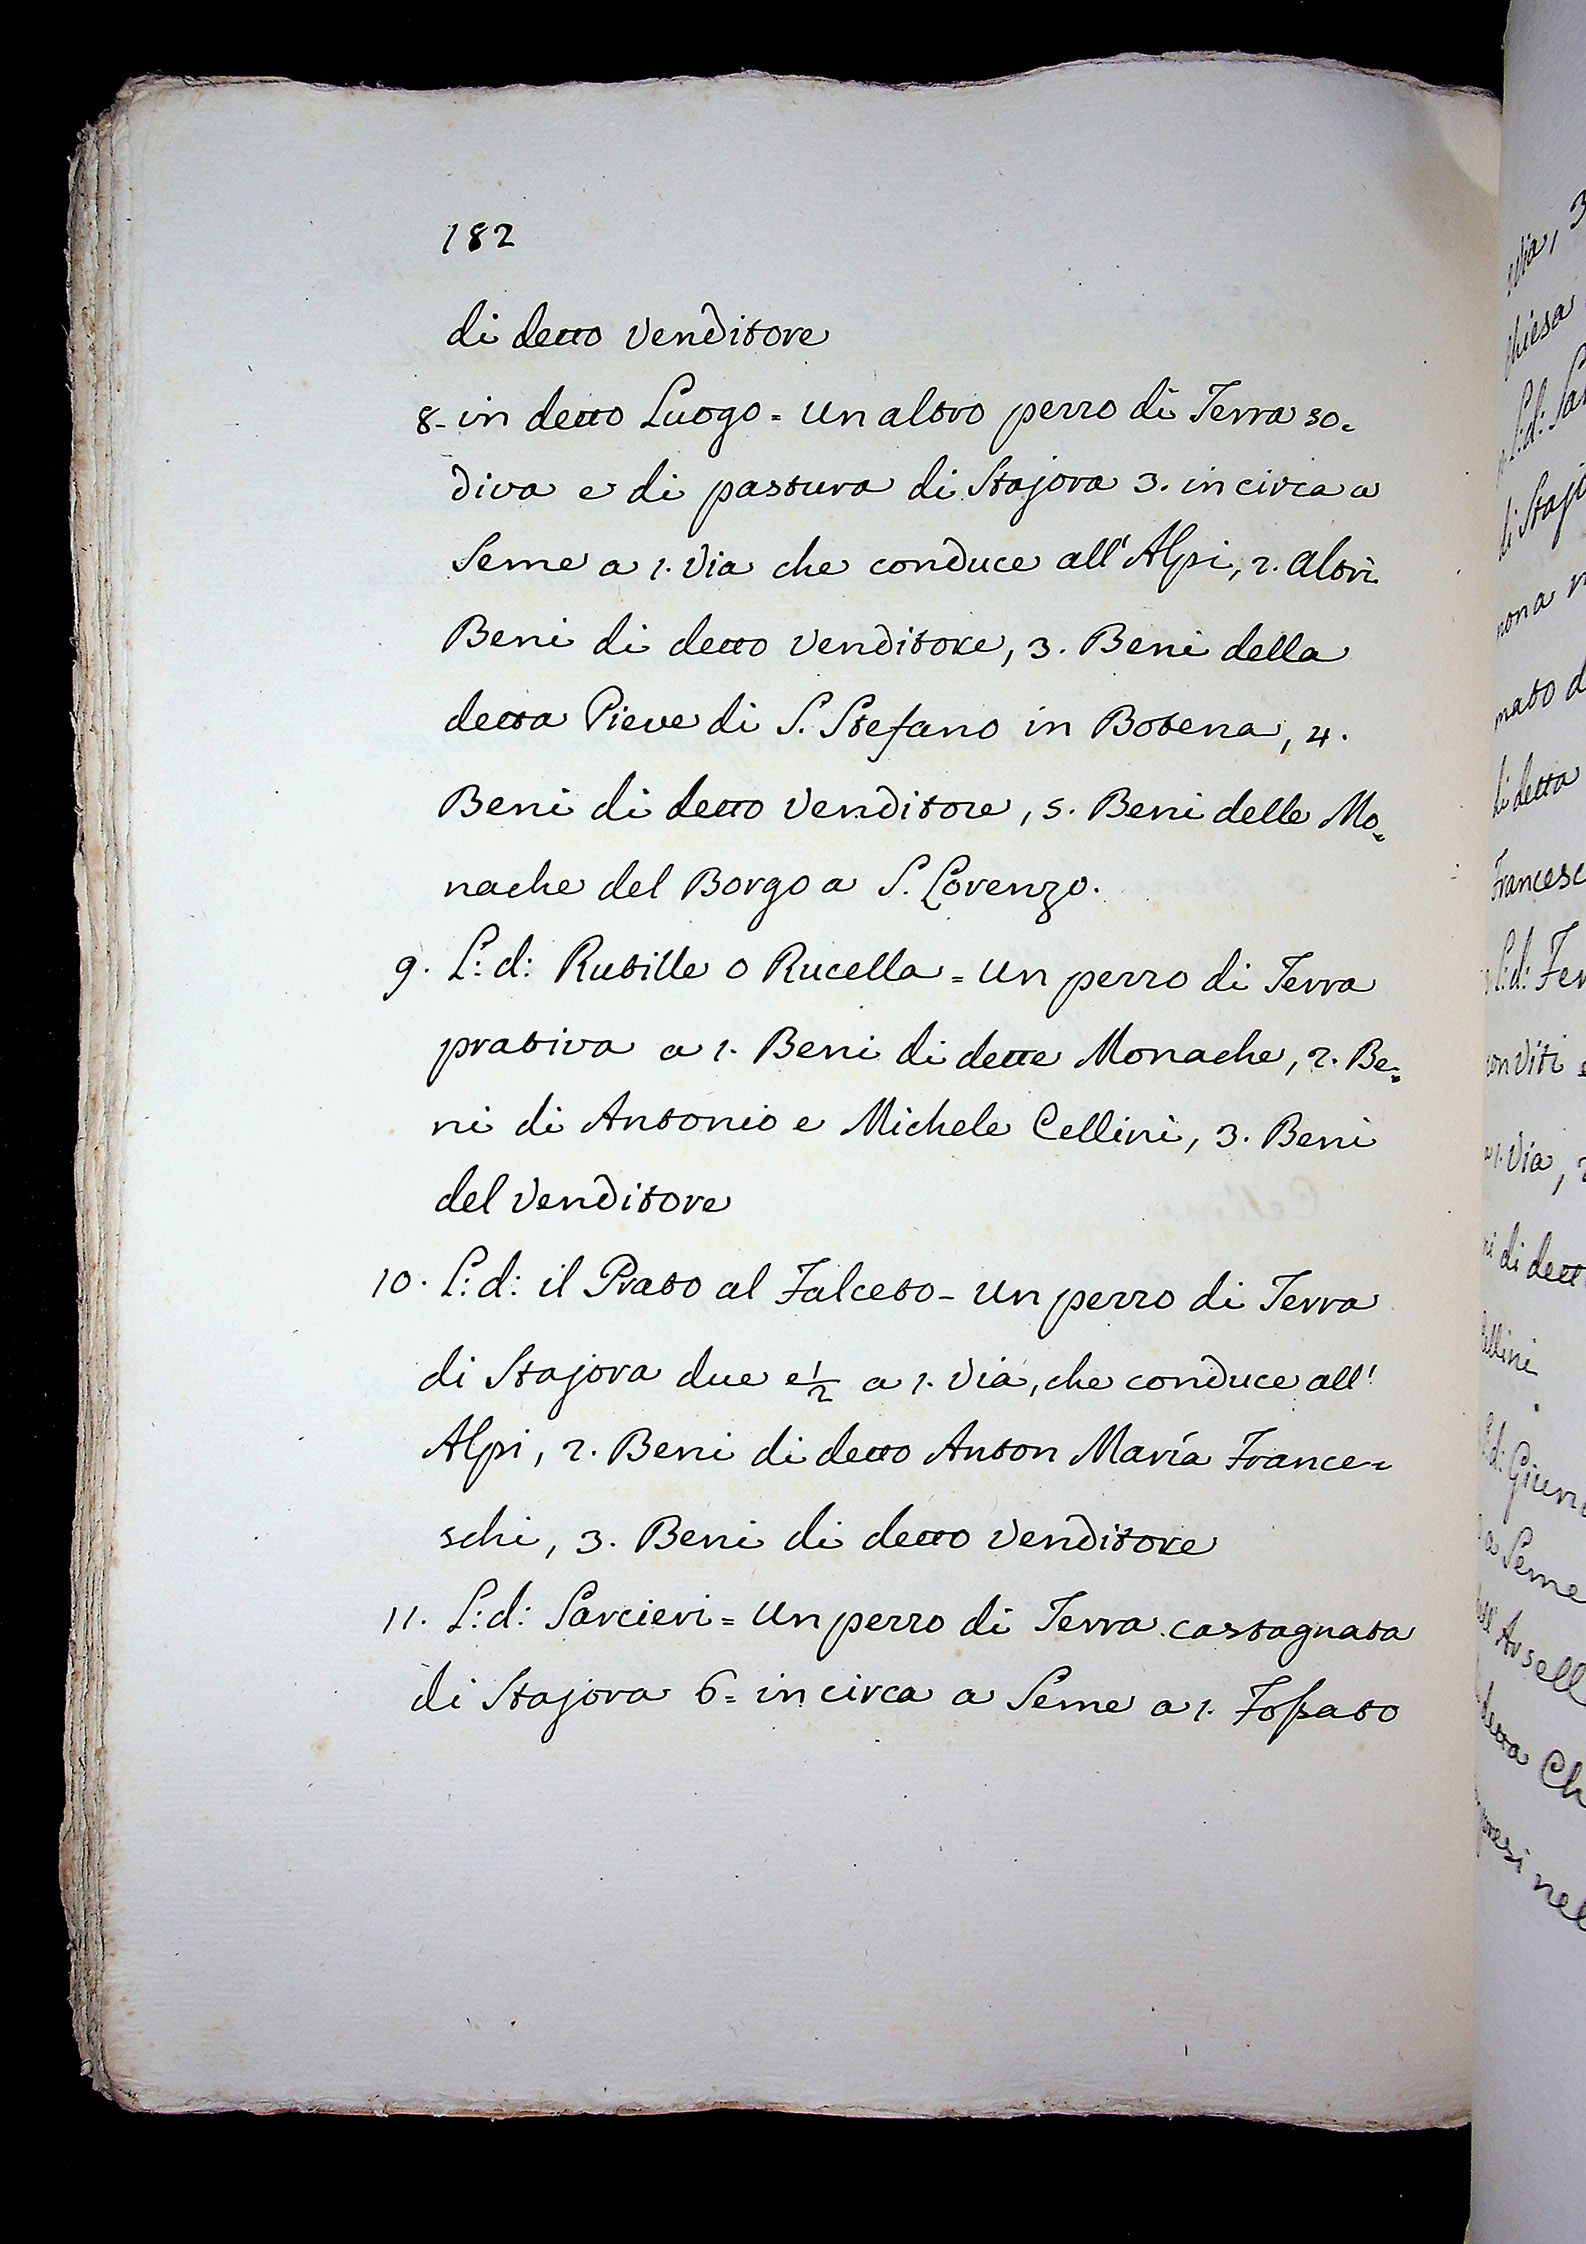 182
di detto Venditore
8- in detto Luogo = Un altro pezzo di Terra so=
diva e di pastura di Stajora 3. in circa a
Seme a 1. Via che conduce all' Alpi, 2. Altri
Beni di detto Venditore, 3. Beni della
detta Pieve di S. Stefano in Botena, 4.
Beni di detto Venditore, 5. Beni delle Mo=
nache del Borgo a S. Lorenzo.
9. L: d: Rutille o Rucella = Un pezzo di Terra
prativa a 1. Beni di dette Monache, 2. Be=
ni di Antonio e Michele Cellini, 3. Beni
del Venditore
10. L: d: il Prato al Falceto - Un pezzo di Terra
di Stajora due e 1/2 a 1. Via, che conduce all'
Alpi, 2. Beni di detto Anton Maria France=
schi, 3. Beni di detto Venditore
11. L: d: Sarcieri = Un pezzo di Terra castagnata
di Stajora 6= in circa a Seme a 1. Fossato